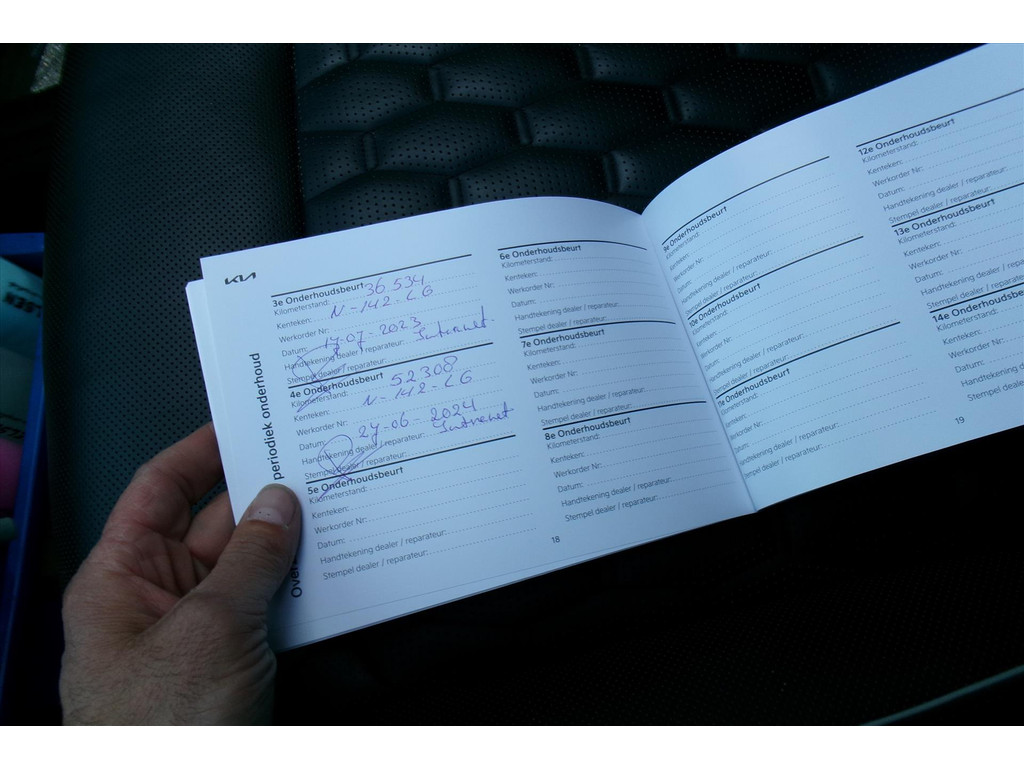 KIA
Over
periodiek onderhoud
3e Onderhoudsbeurt
Kilometerstand: 36 534
Kenteken: N-142-LG
Werkorder Nr:
Datum: 17-07-2023
Handtekening dealer / reparateur: Intranet
Stempel dealer / reparateur:
4e Onderhoudsbeurt
Kilometerstand: 52308
Kenteken: N-142-LG
Werkorder Nr:
Datum: 24-06-2024
Handtekening dealer / reparateur: Intranet
Stempel dealer / reparateur:
5e Onderhoudsbeurt
Kilometerstand:
Kenteken:
Werkorder Nr:
Datum:
Handtekening dealer / reparateur:
Stempel dealer / reparateur:
6e Onderhoudsbeurt
Kilometerstand:
Kenteken:
Werkorder Nr:
Datum:
Handtekening dealer / reparateur:
Stempel dealer / reparateur:
7e Onderhoudsbeurt
Kilometerstand:
Kenteken:
Werkorder Nr:
Datum:
Handtekening dealer / reparateur:
Stempel dealer / reparateur:
8e Onderhoudsbeurt
Kilometerstand:
Kenteken:
Werkorder Nr:
Datum:
Handtekening dealer / reparateur:
Stempel dealer / reparateur:
18
9e Onderhoudsbeurt
Kilometerstand:
Kenteken:
Werkorder Nr:
Datum:
Handtekening dealer / reparateur:
Stempel dealer / reparateur:
10e Onderhoudsbeurt
Kilometerstand:
Kenteken:
Werkorder Nr:
Datum:
Handtekening dealer / reparateur:
Stempel dealer / reparateur:
11e Onderhoudsbeurt
Kilometerstand:
Kenteken:
Werkorder Nr:
Datum:
Handtekening dealer / reparateur:
Stempel dealer / reparateur:
12e Onderhoudsbeurt
Kilometerstand:
Kenteken:
Werkorder Nr:
Datum:
Handtekening dealer / reparateur:
Stempel dealer / reparateur:
13e Onderhoudsbeurt
Kilometerstand:
Kenteken:
Werkorder Nr:
Datum:
Handtekening dealer / reparateur:
Stempel dealer / reparateur:
14e Onderhoudsbeurt
Kilometerstand:
Kenteken:
Werkorder Nr:
Datum:
Handtekening dealer
Stempel dealer /
19